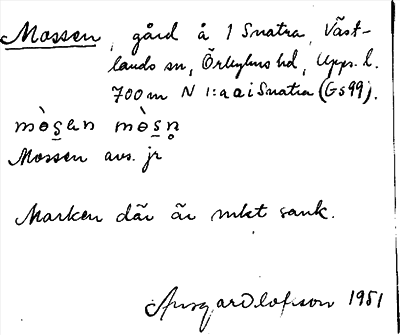 Mossen, gård å 1 Snatra, Väst-
lands sn, Örbyhus hd, Upps. l.
700 m N 1:a a i Snatra (Gs 99).
mòsen mòsn̥
Mossen avs. jr
Marken där är mkt sank.
Ansgar Olofsson 1951